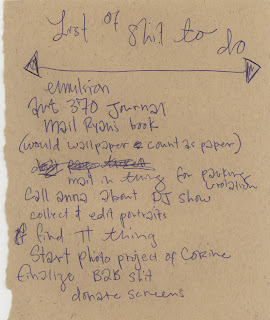 List of Shit to do
emulsion
Art 370 Journal
Mail Ryan's book
(would wallpaper count as paper)
mail in thing for parking
violation
Call anna about DJ show
collect & edit portraits
find TT thing
Start photo project of Corine
finalize B2B shit
donate screens